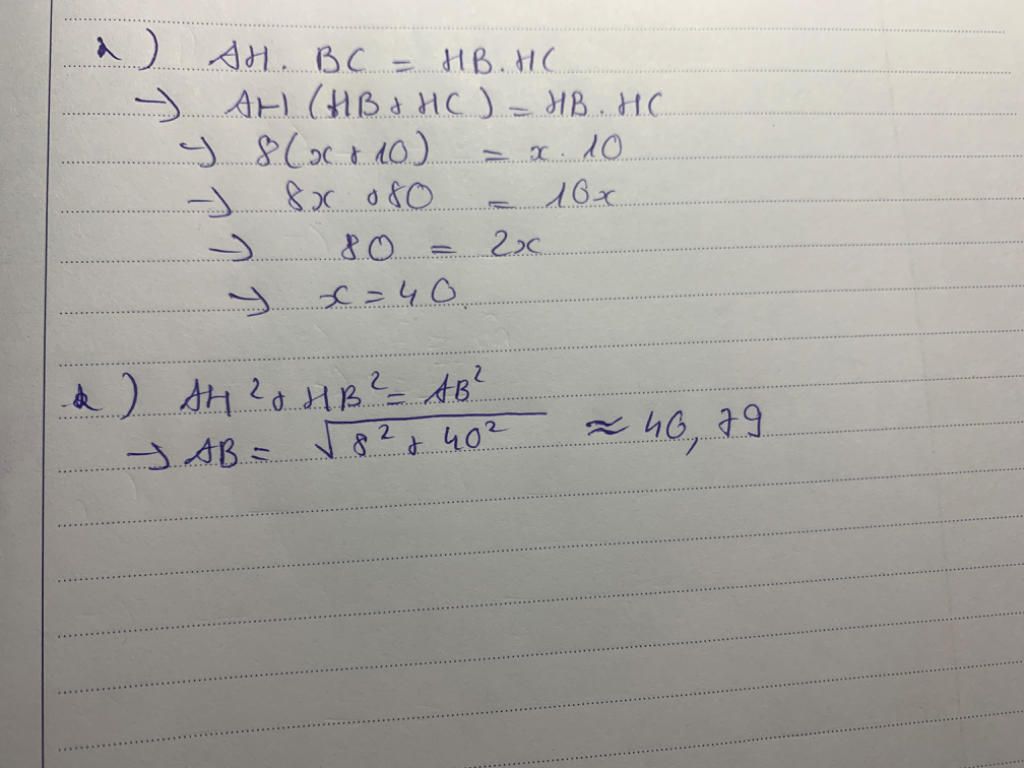 a) AH. BC = HB. HC
→ AH (HB + HC) = HB. HC
→ 8(x + 10) = x. 10
→ 8x + 80 = 10x
→ 80 = 2x
→ x = 40.
b) AH² + HB² = AB²
→ AB = √8² + 40² ≈ 40,79